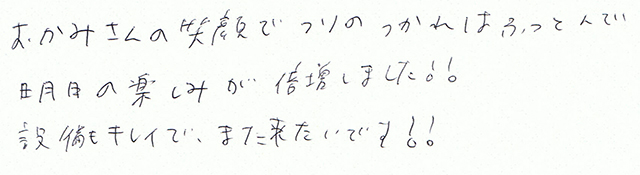 おかみさんの笑顔でつりのつかれはふっとんで
明日の楽しみが倍増しました!!
設備もキレイで、また来たいです!!